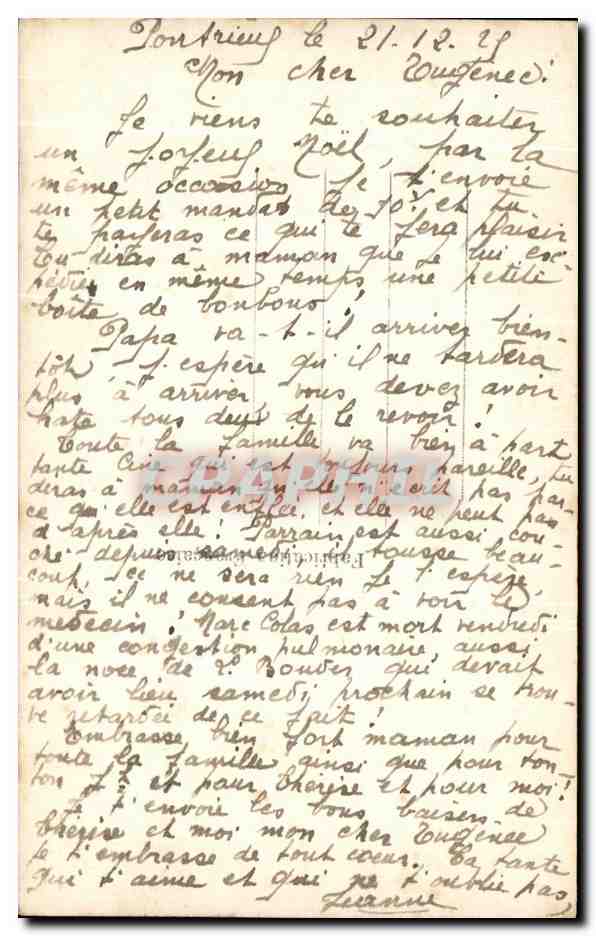 Pontrieux le 21-12-25
Mon cher Eugénec!
Je viens te souhaiter
un Joyeux Noël, par la
même occasion je t'envoie
un petit mandat de 10f. et tu
te payeras ce qui te fera plaisir
tu diras à maman que je lui ex-
pédie en même temps une petite
boîte de bonbons!
Papa va-t-il arriver bien-
tôt, j'espère qu'il ne tardera
plus à arriver vous devez avoir
hâte tous deux de le revoir!
Toute la famille va bien à part
tante qui est toujours pareille, tu
diras à maman qu'elle n'écrit pas par-
ce qu'elle est enflée, et elle ne peut pas
d'après elle! Parrain est aussi cou-
ché depuis samedi il tousse beau-
coup, ce ne sera rien je l'espère,
mais il ne consent pas à voir le
médecin! Marc Colas est mort vendredi
d'une congestion pulmonaire, aussi
la noce de Bouder qui devait
avoir lieu samedi prochain se trou-
ve retardée de ce fait!
Embrasse bien fort maman pour
toute la famille ainsi que pour ton-
ton et pour Thérèse et pour moi!
Je t'envoie les bons baisers de
Thérèse et moi mon cher Eugénec
je t'embrasse de tout coeur. Ta tante
qui t'aime et qui ne t'oublie pas,
Jeanne
CRAPHU
Fabrication Française